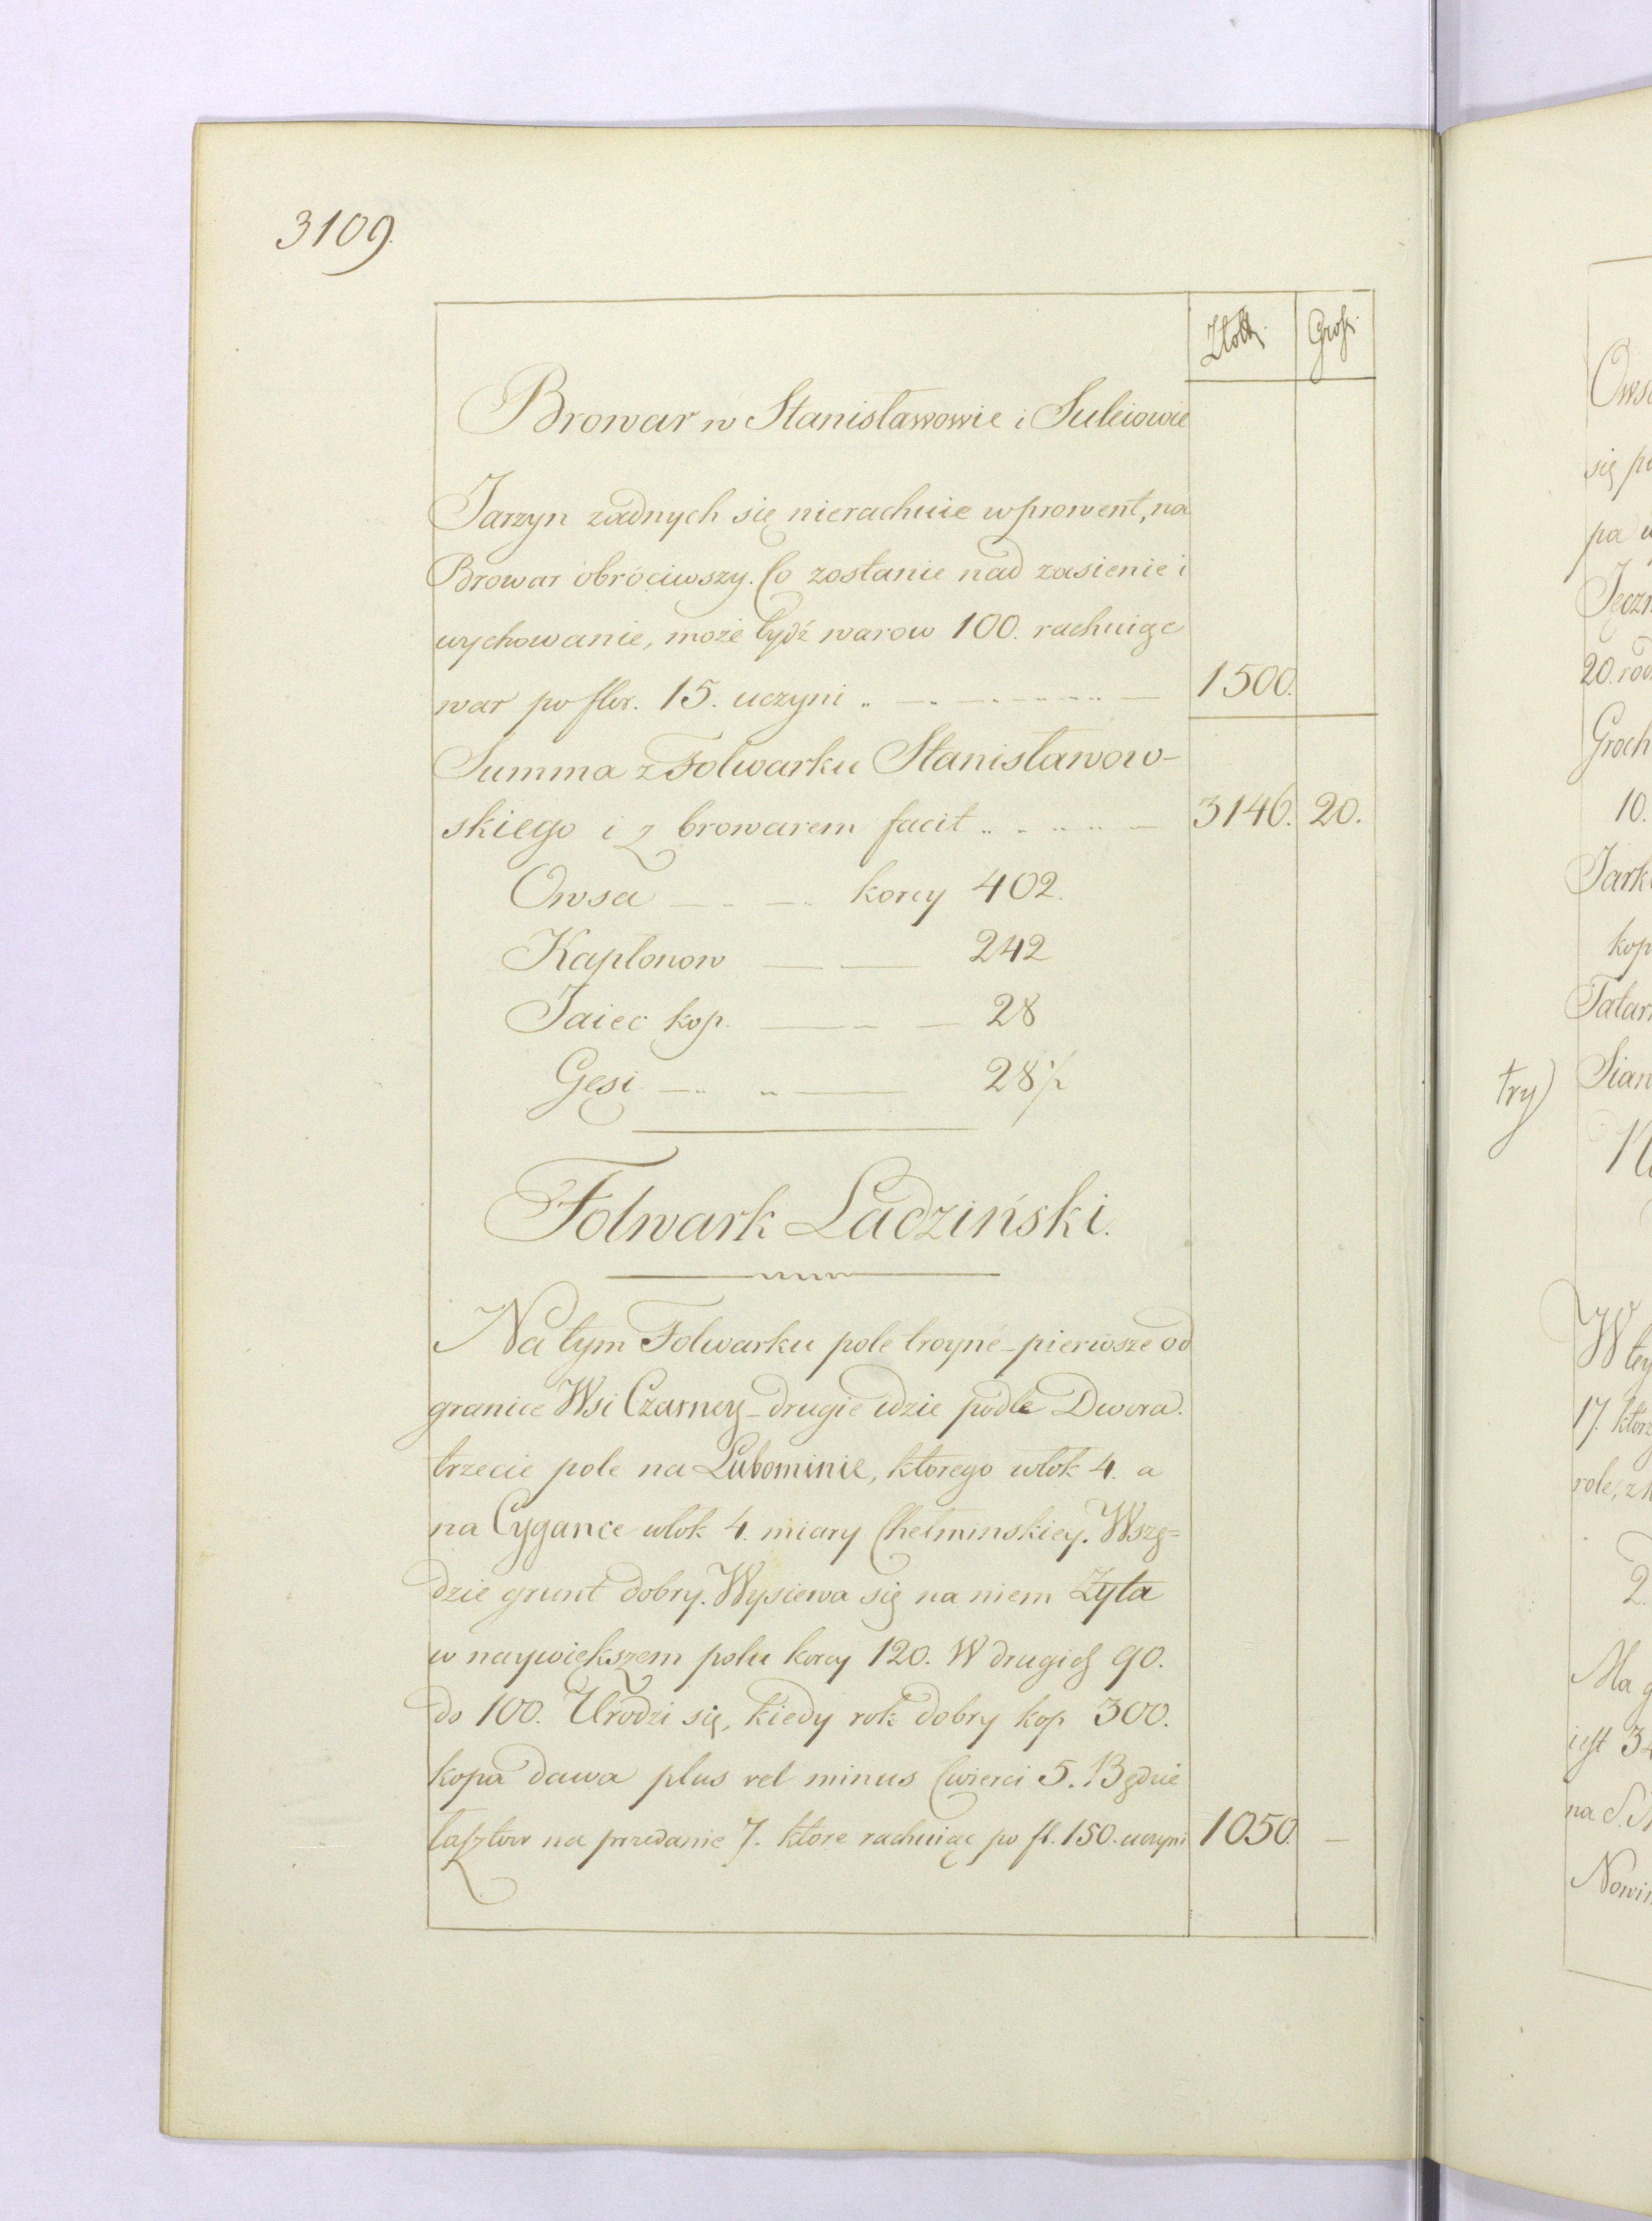 3109.
Złott. Grosz.
Browar w Stanisławowie i Suleiowie
Jarzyn zadnych się nierachuie w prowent, na
Browar obróciwszy. Co zostanie nad zasienie i
wychowanie, może bydź warow 100. rachuiąc
war po flor. 15. uczyni 1500.
Summa z Folwarku Stanisławow-
skiego i z browarem facit 3146. 20.
Owsa korcy 402.
Kapłonow 242
Jaiec kop. 28
Gęsi 28½
Folwark Ladziński.
Na tym Folwarku pole troyne - pierwsze od
granice Wsi Czarney - drugie idzie podle Dwora.
trzecie pole na Lubominie, ktorego włok 4. a
na Cygance włok 4. miary Chełminskiey. Wszę=
dzie grunt dobry. Wysiewa się na niem Zyta
w naywiększem polu korcy 120. W drugich 90.
do 100. Urodzi się, kiedy rok dobry kop 300.
kopa dawa plus vel minus Cwierci 5. Będzie
łasztow na przedanie 7. ktore rachuiąc po fl. 150. uczyni 1050. —
Owsa
się po
pa
Jęczm
20. rod
Groch
10.
Jark
kop
Tatar
try) Sian
W tey
17. ktorz
role, z
2.
Ma g
iest 3
na S.
Nowin